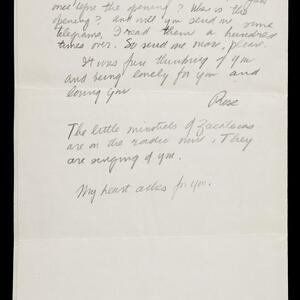 once before the opening? When is the
opening? And will you send me some
telegrams, I read them a hundred
times over. So send me more, please.
It was fine thinking of you
and being lonely for you and
loving you
Rose
The little minstrels of Zacatecas
are on the radio now. They
are singing of you.
My heart aches for you.